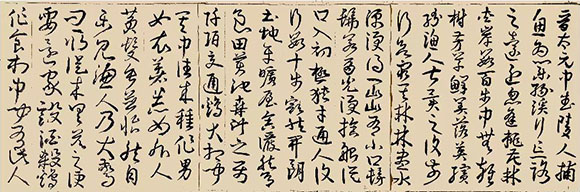 晉太元中武陵人捕
魚為業緣溪行忘路
之遠近忽逢桃花林
夾岸數百步中無雜
樹芳草鮮美落英繽
紛漁人甚異之復前
行欲窮其林林盡水
源便得一山山有小口髣
髴若有光便捨船從
口入初極狹才通人復
行數十步豁然開朗
土地平曠屋舍儼然有
良田美池桑竹之屬
阡陌交通雞犬相聞
其中往來種作男
女衣著悉如外人
黃髮垂髫並怡然自
樂見漁人乃大驚
問所從來具答之便
要還家設酒殺雞
作食村中聞有此人